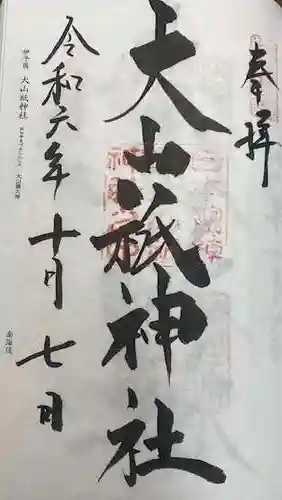 奉拝
大山祇神社
令和六年十月七日
伊予国 大山祇神社
南海道